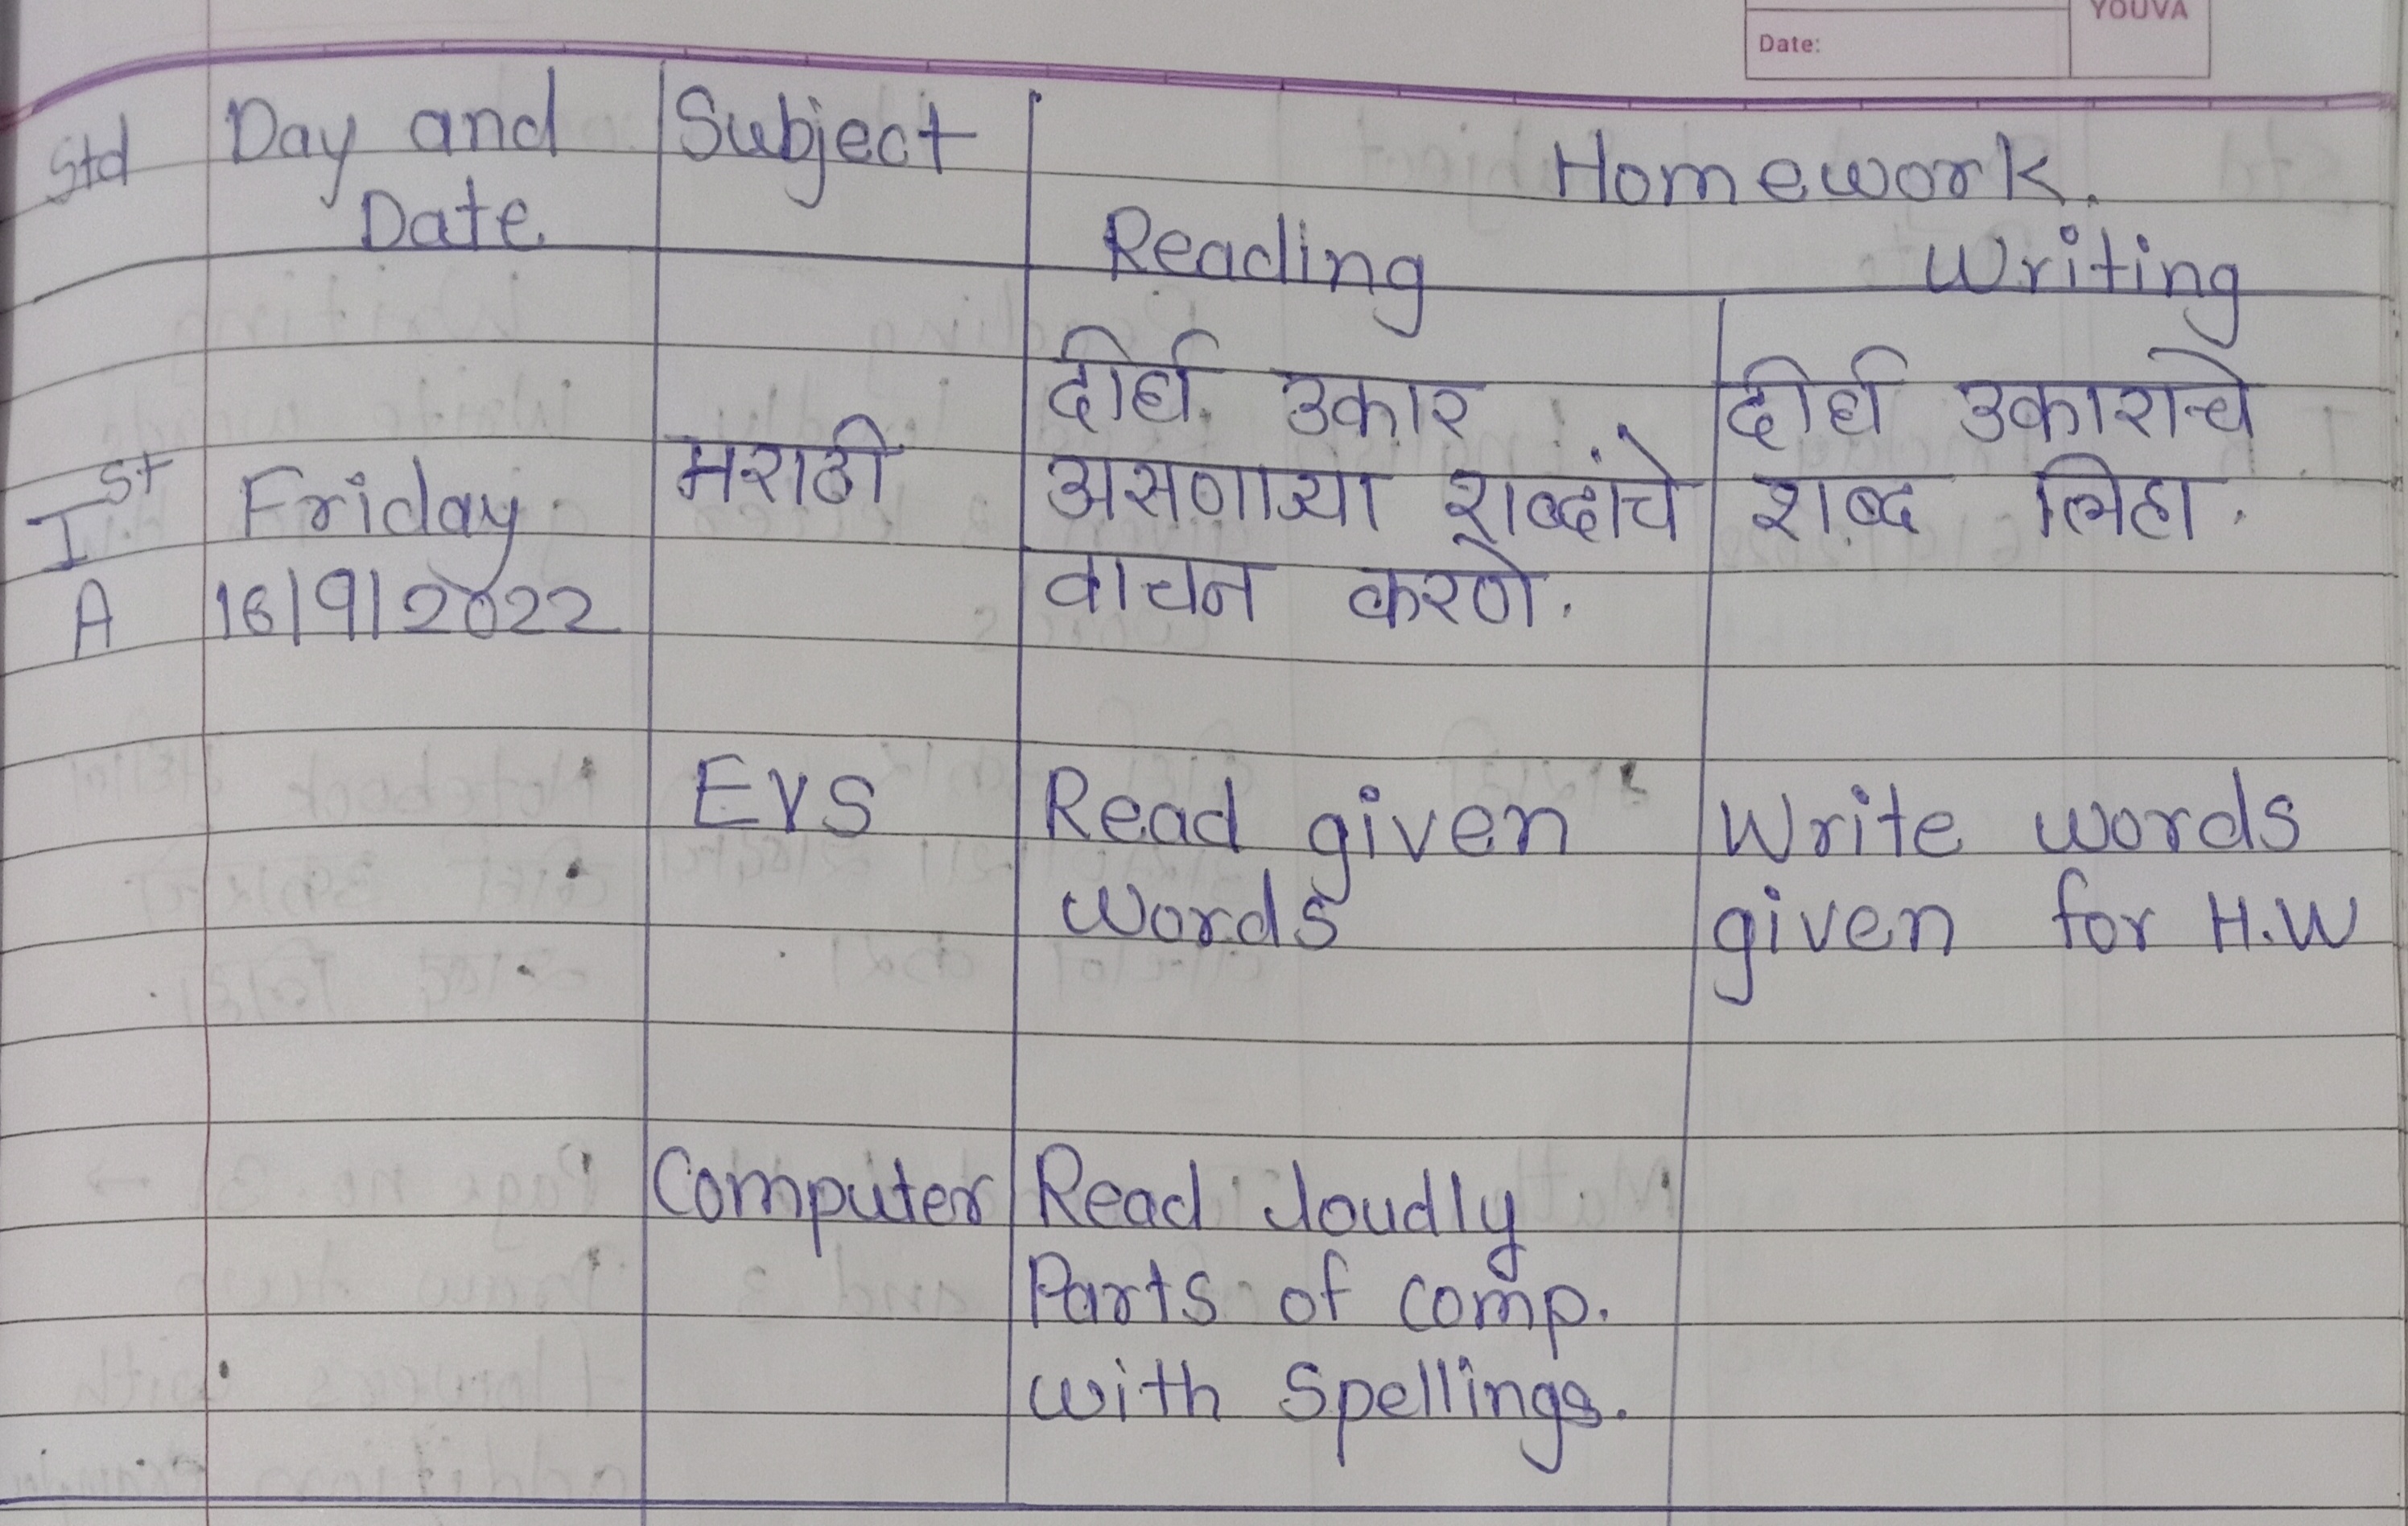 YOUVA
Date:
Std Day and Date Subject Homework.
Reading Writing
Ist A Friday 16/9/2022
मराठी
दीर्घ उकार
असणाऱ्या शब्दांचे
वाचन करणे.
दीर्घ उकाराचे
शब्द लिहा.
EVS
Read given
words
Write words
given for H.W
Computer
Read loudly
Parts of comp.
with Spellings.